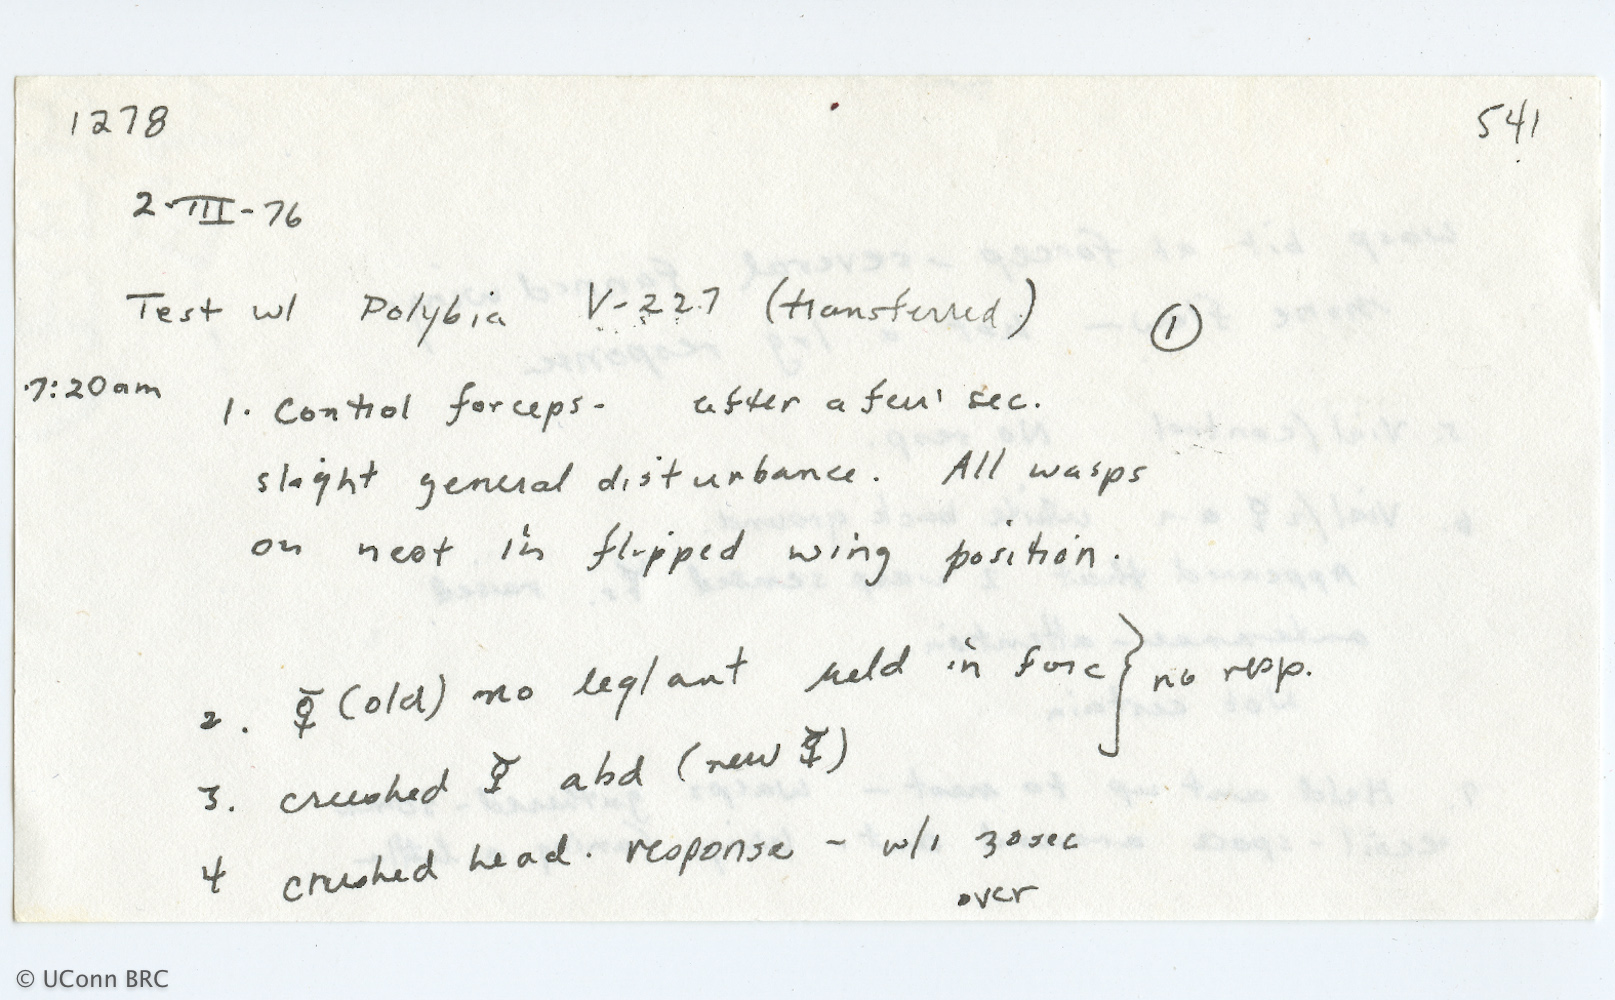 1278 541
2-III-76
Test w/ Polybia V-227 (transferred) ①
7:20am 1. Control forceps - after a few sec.
slight general disturbance. All wasps
on nest in flipped wing position.
2. ☿ (old) no leg/ant held in forc } no resp.
3. crushed ☿ abd (new ☿)
4 crushed head. response - w/i 30sec
over
© UConn BRC